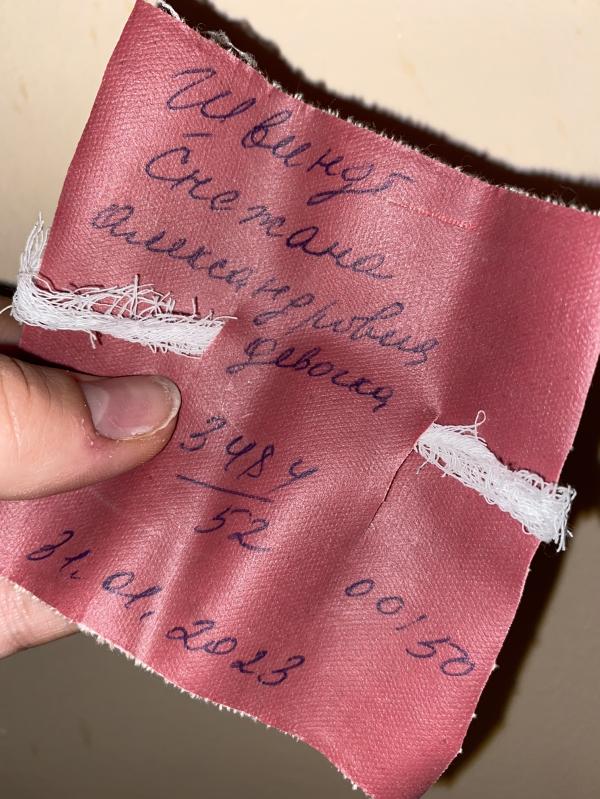 Швиндт
Снежана
Александровна
девочка
3484
52
31.01.2023 00/50